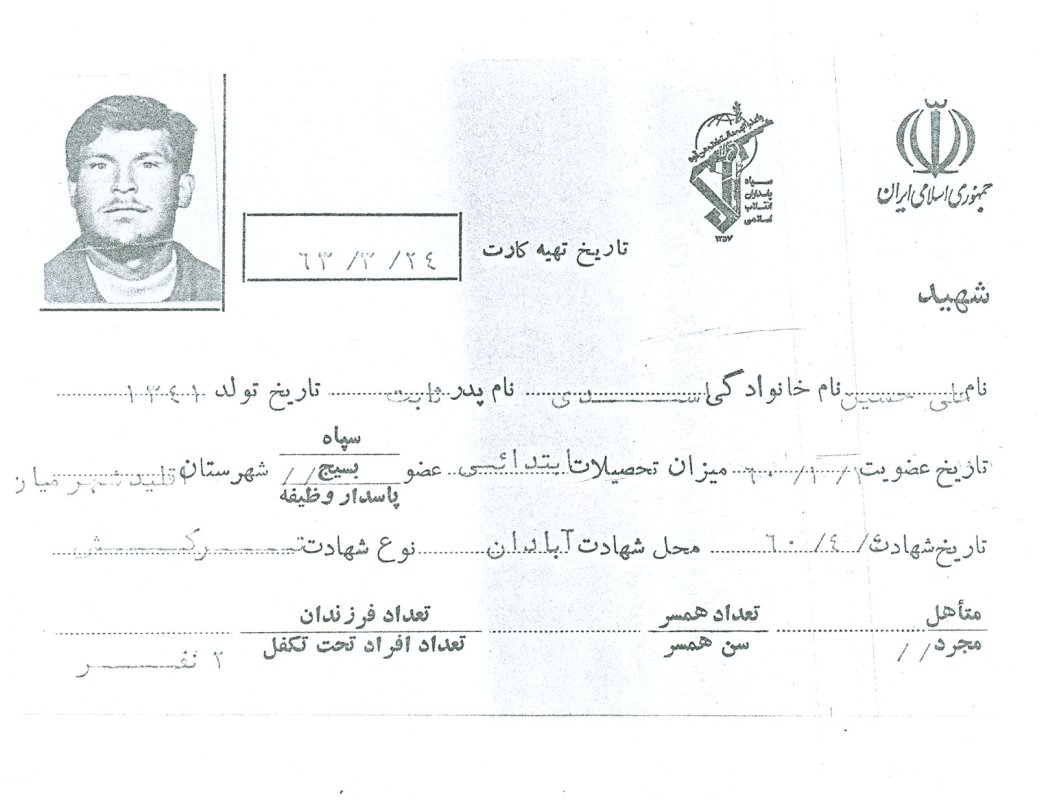 جمهوری اسلامی ایران
سپاه
پاسداران
انقلاب
اسلامی
۱۳۵۷
تاریخ تهیه کارت ۶۳/۳/۲۴
شهید
نام علی حسین نام خانوادگی اسدی نام پدر ثابت تاریخ تولد ۱۳۴۱
تاریخ عضویت میزان تحصیلات ابتدائی عضو سپاه بسیج // پاسدار وظیفه شهرستان اقلید شهر میان
تاریخ شهادت ۶۰/۴/ محل شهادت آبادان نوع شهادت ترکش
متأهل تعداد همسر تعداد فرزندان
مجرد // سن همسر تعداد افراد تحت تکفل ۲ نفر